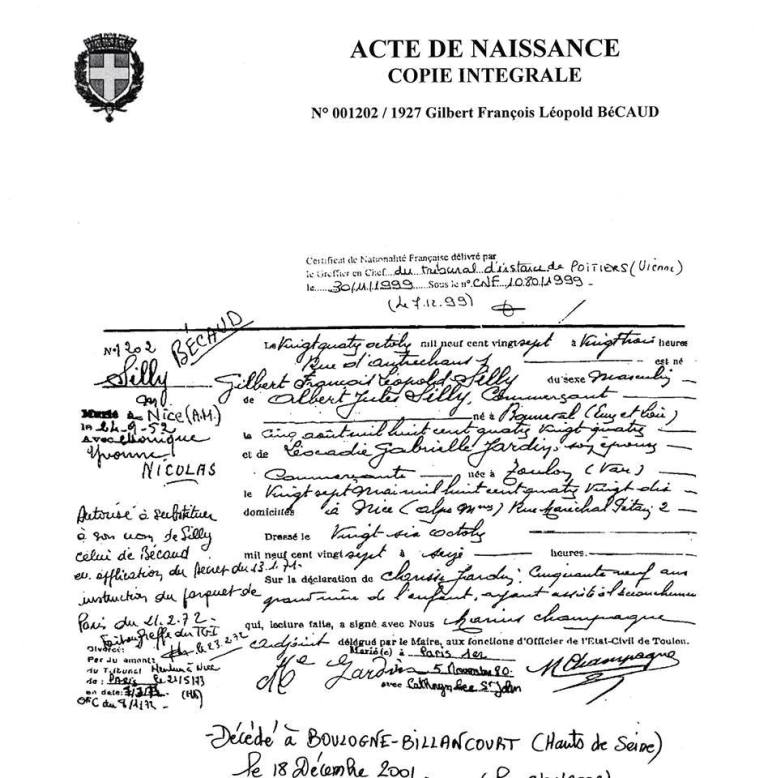 ACTE DE NAISSANCE
COPIE INTEGRALE
N° 001202 / 1927 Gilbert François Léopold BéCAUD
Certificat de Nationalité Française délivré par
le Greffier en Chef du tribunal d'instance de POITIERS (Vienne)
le 30/11/1999 Sous le n° CNF 1080/1999
(Le 7.12.99)
N° 1202
BÉCAUD
Silly
Marié à Nice (A.M.)
le 24-9-52
avec Monique
Yvonne
NICOLAS
Autorisé à substituer
à son nom de Silly
celui de Bécaud
en application du décret du 13.1.71
instruction du parquet de
Paris du 21.2.72
Divorcé:
Par Jugement
du Tribunal
de: Paris
en date:
Le Vingt quatre octobre mil neuf cent vingt sept à Vingt trois heures
Rue d'Antrechaus est né
Gilbert François Léopold Silly du sexe Masculin
de Albert Jules Silly, Commerçant
né à Bonneval (Eure et Loir)
le cinq août mil huit cent quatre vingt quatre
et de Léocadie Gabrielle Jardin, son épouse
Commerçante née à Toulon (Var)
le Vingt sept Mai mil huit cent quatre Vingt dix
domiciliés à Nice (Alpes Mmes) Rue Maréchal Pétain 2
Dressé le Vingt six octobre
mil neuf cent vingt sept à seize heures.
Sur la déclaration de Jardin, Cinquante neuf ans
grand'mère de l'enfant, ayant assisté à l'accouchement
qui, lecture faite, a signé avec Nous Marius Champagne
adjoint délégué par le Maire, aux fonctions d'Officier de l'Etat-Civil de Toulon.
Marié(e) à Paris 1er
5 Novembre 80
avec Cathryn Lee St John
Jardin
M Champagne
-Décédé à BOULOGNE-BILLANCOURT (Hauts de Seine)
le 18 Décembre 2001